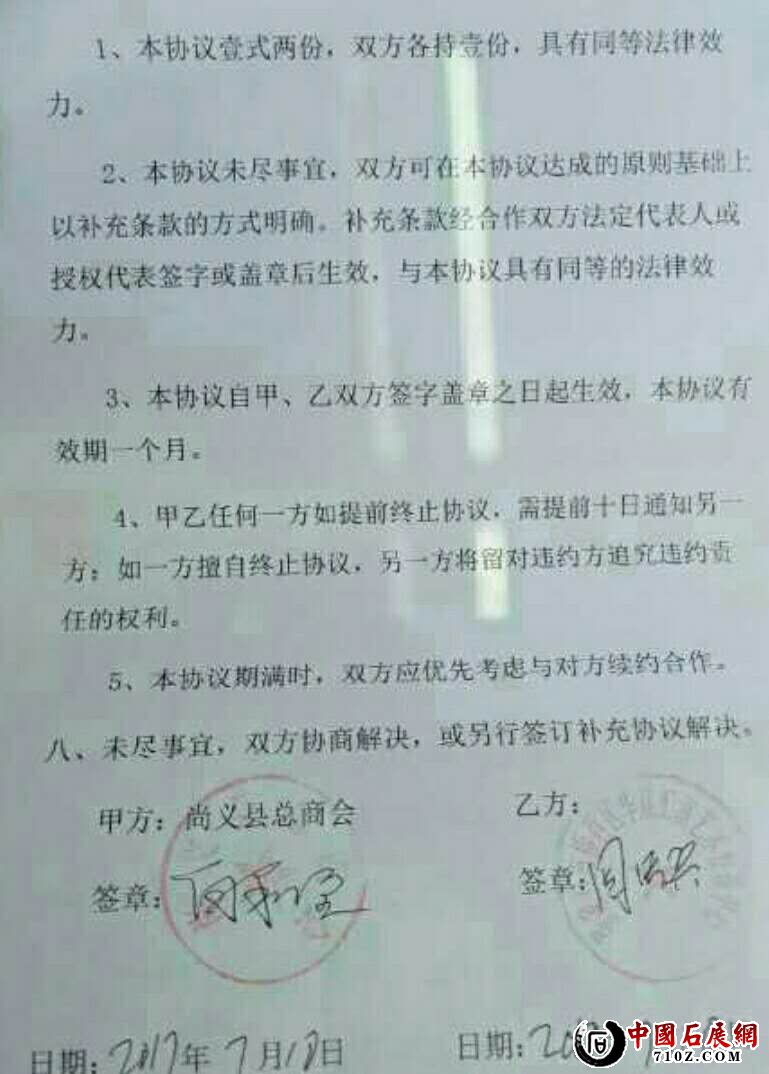 1、本协议壹式两份，双方各持壹份，具有同等法律效
力。
2、本协议未尽事宜，双方可在本协议达成的原则基础上
以补充条款的方式明确。补充条款经合作双方法定代表人或
授权代表签字或盖章后生效，与本协议具有同等的法律效
力。
3、本协议自甲、乙双方签字盖章之日起生效，本协议有
效期一个月。
4、甲乙任何一方如提前终止协议，需提前十日通知另一
方；如一方擅自终止协议，另一方将留对违约方追究违约责
任的权利。
5、本协议期满时，双方应优先考虑与对方续约合作。
八、未尽事宜，双方协商解决，或另行签订补充协议解决。
甲方：尚义县总商会
乙方：
签章：
签章：
日期：2017年7月18日
日期：
中國石展網
710Z.COM